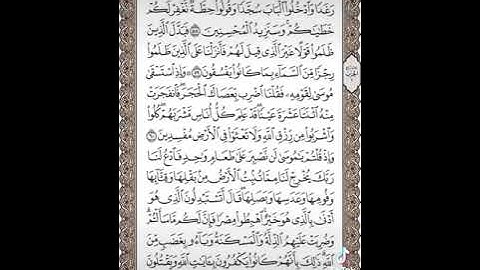 رَغَدًا وَادْخُلُوا الْبَابَ سُجَّدًا وَقُولُوا حِطَّةٌ نَغْفِرْ لَكُمْ
خَطَايَاكُمْ وَسَنَزِيدُ الْمُحْسِنِينَ ٥٨ فَبَدَّلَ الَّذِينَ
ظَلَمُوا قَوْلًا غَيْرَ الَّذِي قِيلَ لَهُمْ فَأَنْزَلْنَا عَلَى الَّذِينَ ظَلَمُوا
رِجْزًا مِنَ السَّمَاءِ بِمَا كَانُوا يَفْسُقُونَ ٥٩ وَإِذِ اسْتَسْقَى
مُوسَى لِقَوْمِهِ فَقُلْنَا اضْرِبْ بِعَصَاكَ الْحَجَرَ فَانْفَجَرَتْ
مِنْهُ اثْنَتَا عَشْرَةَ عَيْنًا قَدْ عَلِمَ كُلُّ أُنَاسٍ مَشْرَبَهُمْ كُلُوا
وَاشْرَبُوا مِنْ رِزْقِ اللَّهِ وَلَا تَعْثَوْا فِي الْأَرْضِ مُفْسِدِينَ ٦٠
وَإِذْ قُلْتُمْ يَا مُوسَى لَنْ نَصْبِرَ عَلَى طَعَامٍ وَاحِدٍ فَادْعُ لَنَا
رَبَّكَ يُخْرِجْ لَنَا مِمَّا تُنْبِتُ الْأَرْضُ مِنْ بَقْلِهَا وَقِثَّائِهَا
وَفُومِهَا وَعَدَسِهَا وَبَصَلِهَا قَالَ أَتَسْتَبْدِلُونَ الَّذِي هُوَ
أَدْنَى بِالَّذِي هُوَ خَيْرٌ اهْبِطُوا مِصْرًا فَإِنَّ لَكُمْ مَا سَأَلْتُمْ
وَضُرِبَتْ عَلَيْهِمُ الذِّلَّةُ وَالْمَسْكَنَةُ وَبَاءُوا بِغَضَبٍ مِنَ
اللَّهِ ذَلِكَ بِأَنَّهُمْ كَانُوا يَكْفُرُونَ بِآيَاتِ اللَّهِ وَيَقْتُلُونَ